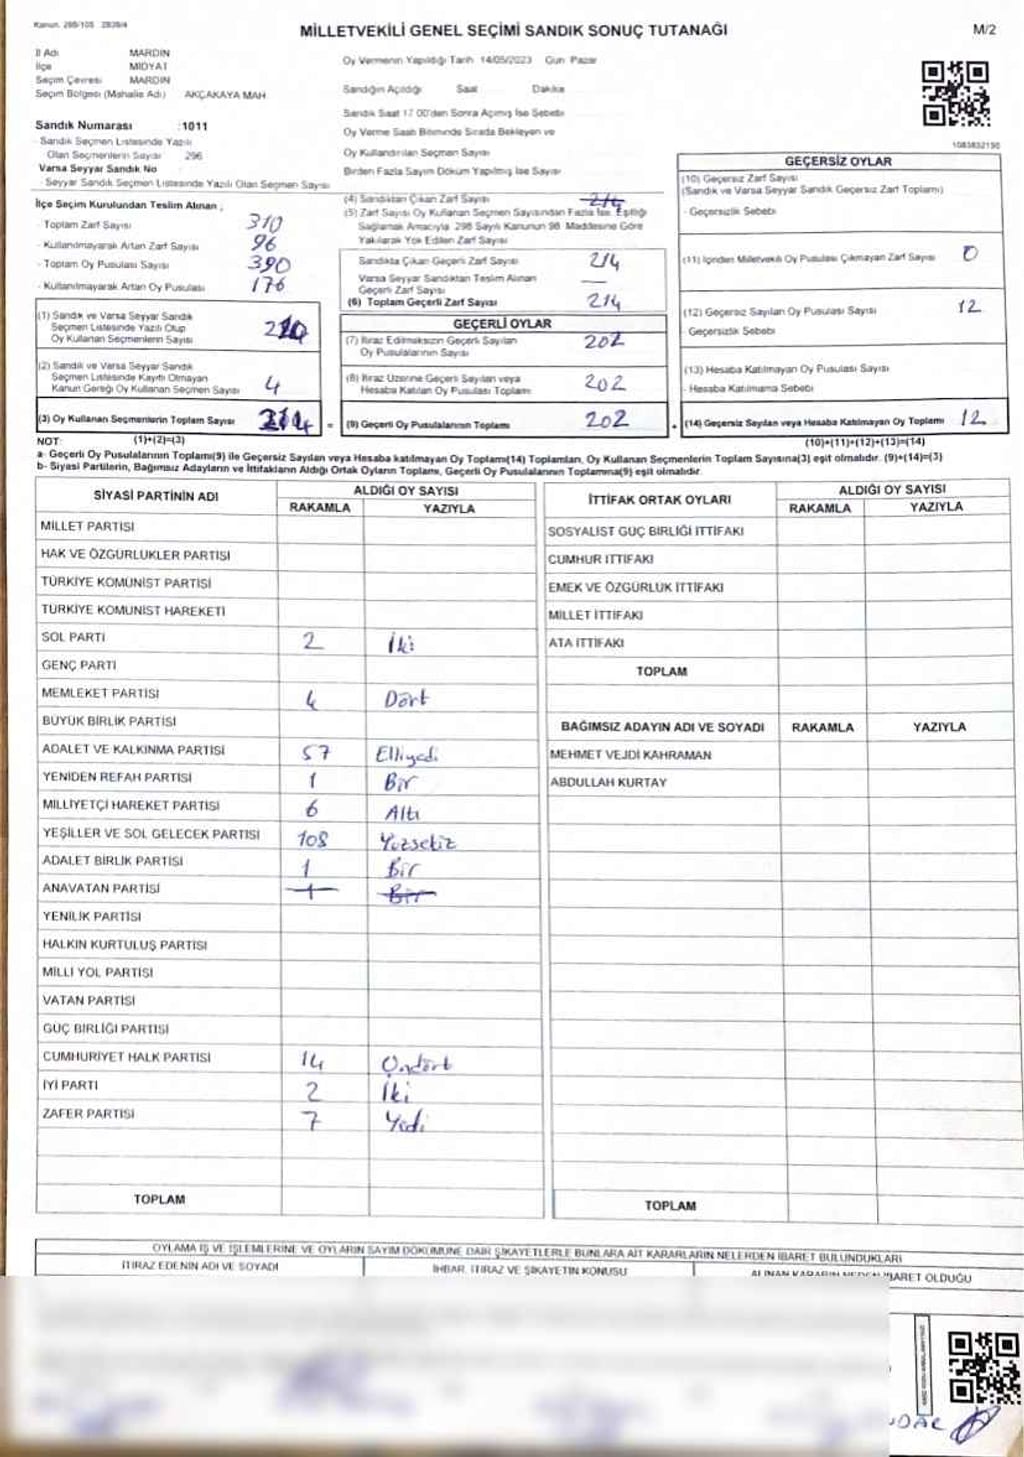 Kanun. 298/105 2839/4
MİLLETVEKİLİ GENEL SEÇİMİ SANDIK SONUÇ TUTANAĞI
M/2
İl Adı MARDIN
İlçe MIDYAT
Seçim Çevresi MARDIN
Seçim Bölgesi (Mahalle Adı) AKÇAKAYA MAH
Oy Vermenin Yapıldığı Tarih 14/05/2023 Gün Pazar
Sandığın Açıldığı Saat Dakika
Sandık Saat 17 00'den Sonra Açılmış İse Sebebi
Oy Verme Saati Bitiminde Sırada Bekleyen ve
Oy Kullandırılan Seçmen Sayısı
Birden Fazla Sayım Döküm Yapılmış İse Sayısı
Sandık Numarası :1011
- Sandık Seçmen Listesinde Yazılı
Olan Seçmenlerin Sayısı 296
Varsa Seyyar Sandık No
- Seyyar Sandık Seçmen Listesinde Yazılı Olan Seçmen Sayısı
1083832190
İlçe Seçim Kurulundan Teslim Alınan ;
- Toplam Zarf Sayısı 310
- Kullanılmayarak Artan Zarf Sayısı 96
- Toplam Oy Pusulası Sayısı 390
- Kullanılmayarak Artan Oy Pusulası 176
(1) Sandık ve Varsa Seyyar Sandık
Seçmen Listesinde Yazılı Olup
Oy Kullanan Seçmenlerin Sayısı 210
(2) Sandık ve Varsa Seyyar Sandık
Seçmen Listesinde Kayıtlı Olmayan
Kanun Gereği Oy Kullanan Seçmen Sayısı 4
(3) Oy Kullanan Seçmenlerin Toplam Sayısı 214 =
(4) Sandıktan Çıkan Zarf Sayısı 214
(5) Zarf Sayısı Oy Kullanan Seçmen Sayısından Fazla İse, Eşitliği
Sağlamak Amacıyla 298 Sayılı Kanunun 98. Maddesine Göre
Yakılarak Yok Edilen Zarf Sayısı
Sandıkta Çıkan Geçerli Zarf Sayısı 214
Varsa Seyyar Sandıktan Teslim Alınan
Geçerli Zarf Sayısı —
(6) Toplam Geçerli Zarf Sayısı 214
GEÇERLİ OYLAR
(7) İtiraz Edilmeksizin Geçerli Sayılan
Oy Pusulalarının Sayısı 202
(8) İtiraz Üzerine Geçerli Sayılan veya
Hesaba Katılan Oy Pusulası Toplamı 202
(9) Geçerli Oy Pusulalarının Toplamı 202 +
GEÇERSİZ OYLAR
(10) Geçersiz Zarf Sayısı
(Sandık ve Varsa Seyyar Sandık Geçersiz Zarf Toplamı)
- Geçersizlik Sebebi
(11) İçinden Milletvekili Oy Pusulası Çıkmayan Zarf Sayısı 0
(12) Geçersiz Sayılan Oy Pusulası Sayısı 12
- Geçersizlik Sebebi
(13) Hesaba Katılmayan Oy Pusulası Sayısı
- Hesaba Katılmama Sebebi
(14) Geçersiz Sayılan veya Hesaba Katılmayan Oy Toplamı 12
NOT: (1)+(2)=(3)
(10)+(11)+(12)+(13)=(14)
a- Geçerli Oy Pusulalarının Toplamı(9) ile Geçersiz Sayılan veya Hesaba katılmayan Oy Toplamı(14) Toplamları, Oy Kullanan Seçmenlerin Toplam Sayısına(3) eşit olmalıdır. (9)+(14)=(3)
b- Siyasi Partilerin, Bağımsız Adayların ve İttifakların Aldığı Ortak Oyların Toplamı, Geçerli Oy Pusulalarının Toplamına(9) eşit olmalıdır.
SİYASİ PARTİNİN ADI ALDIĞI OY SAYISI
RAKAMLA YAZIYLA
MİLLET PARTİSİ
HAK VE ÖZGÜRLÜKLER PARTİSİ
TÜRKİYE KOMÜNİST PARTİSİ
TÜRKİYE KOMÜNİST HAREKETİ
SOL PARTİ 2 İki
GENÇ PARTİ
MEMLEKET PARTİSİ 4 Dört
BÜYÜK BİRLİK PARTİSİ
ADALET VE KALKINMA PARTİSİ 57 Elliyedi
YENİDEN REFAH PARTİSİ 1 Bir
MİLLİYETÇİ HAREKET PARTİSİ 6 Altı
YEŞİLLER VE SOL GELECEK PARTİSİ 108 Yüzsekiz
ADALET BİRLİK PARTİSİ 1 Bir
ANAVATAN PARTİSİ 1 Bir
YENİLİK PARTİSİ
HALKIN KURTULUŞ PARTİSİ
MİLLİ YOL PARTİSİ
VATAN PARTİSİ
GÜÇ BİRLİĞİ PARTİSİ
CUMHURİYET HALK PARTİSİ 14 Ondört
İYİ PARTİ 2 İki
ZAFER PARTİSİ 7 Yedi
TOPLAM
İTTİFAK ORTAK OYLARI ALDIĞI OY SAYISI
RAKAMLA YAZIYLA
SOSYALİST GÜÇ BİRLİĞİ İTTİFAKI
CUMHUR İTTİFAKI
EMEK VE ÖZGÜRLÜK İTTİFAKI
MİLLET İTTİFAKI
ATA İTTİFAKI
TOPLAM
BAĞIMSIZ ADAYIN ADI VE SOYADI RAKAMLA YAZIYLA
MEHMET VEJDİ KAHRAMAN
ABDULLAH KURTAY
TOPLAM
OYLAMA İŞ VE İŞLEMLERİNE VE OYLARIN SAYIM DÖKÜMÜNE DAİR ŞİKAYETLERLE BUNLARA AİT KARARLARIN NELERDEN İBARET BULUNDUKLARI
İTİRAZ EDENİN ADI VE SOYADI İHBAR, İTİRAZ VE ŞİKAYETİN KONUSU ALINAN KARARIN NEDEN İBARET OLDUĞU